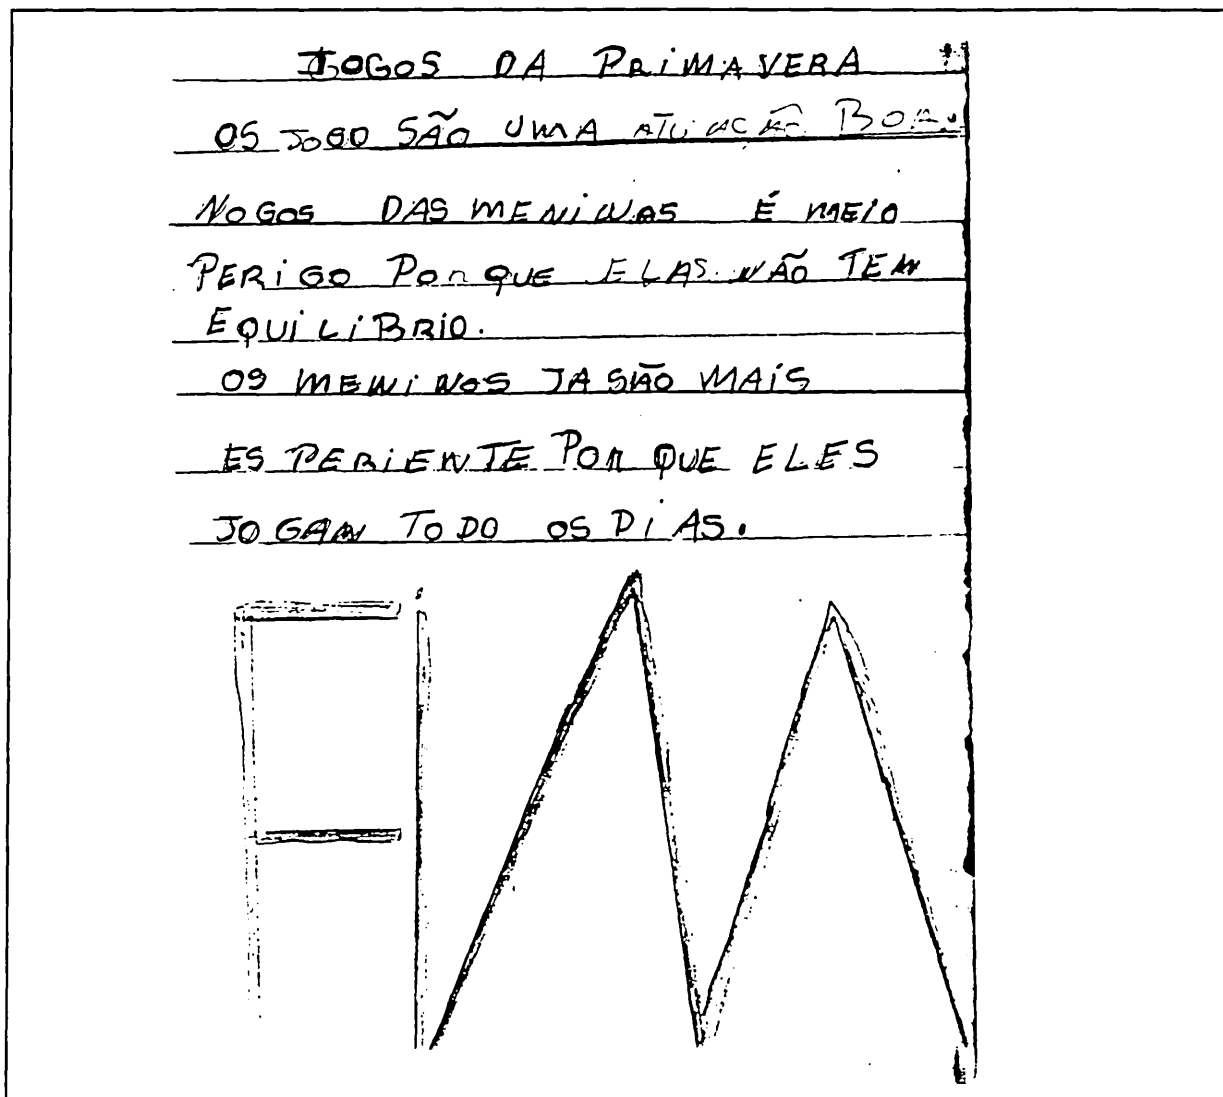 JOGOS DA PRIMAVERA
OS JOGO SÃO UMA ATUACÃO BOA.
NOGOS DAS MENINAS É MEIO
PERIGO POR QUE ELAS NÃO TEM
EQUILIBRIO.
OS MENINOS JA SÃO MAIS
ESPERIENTE POR QUE ELES
JOGAM TODO OS DIAS.
FIM